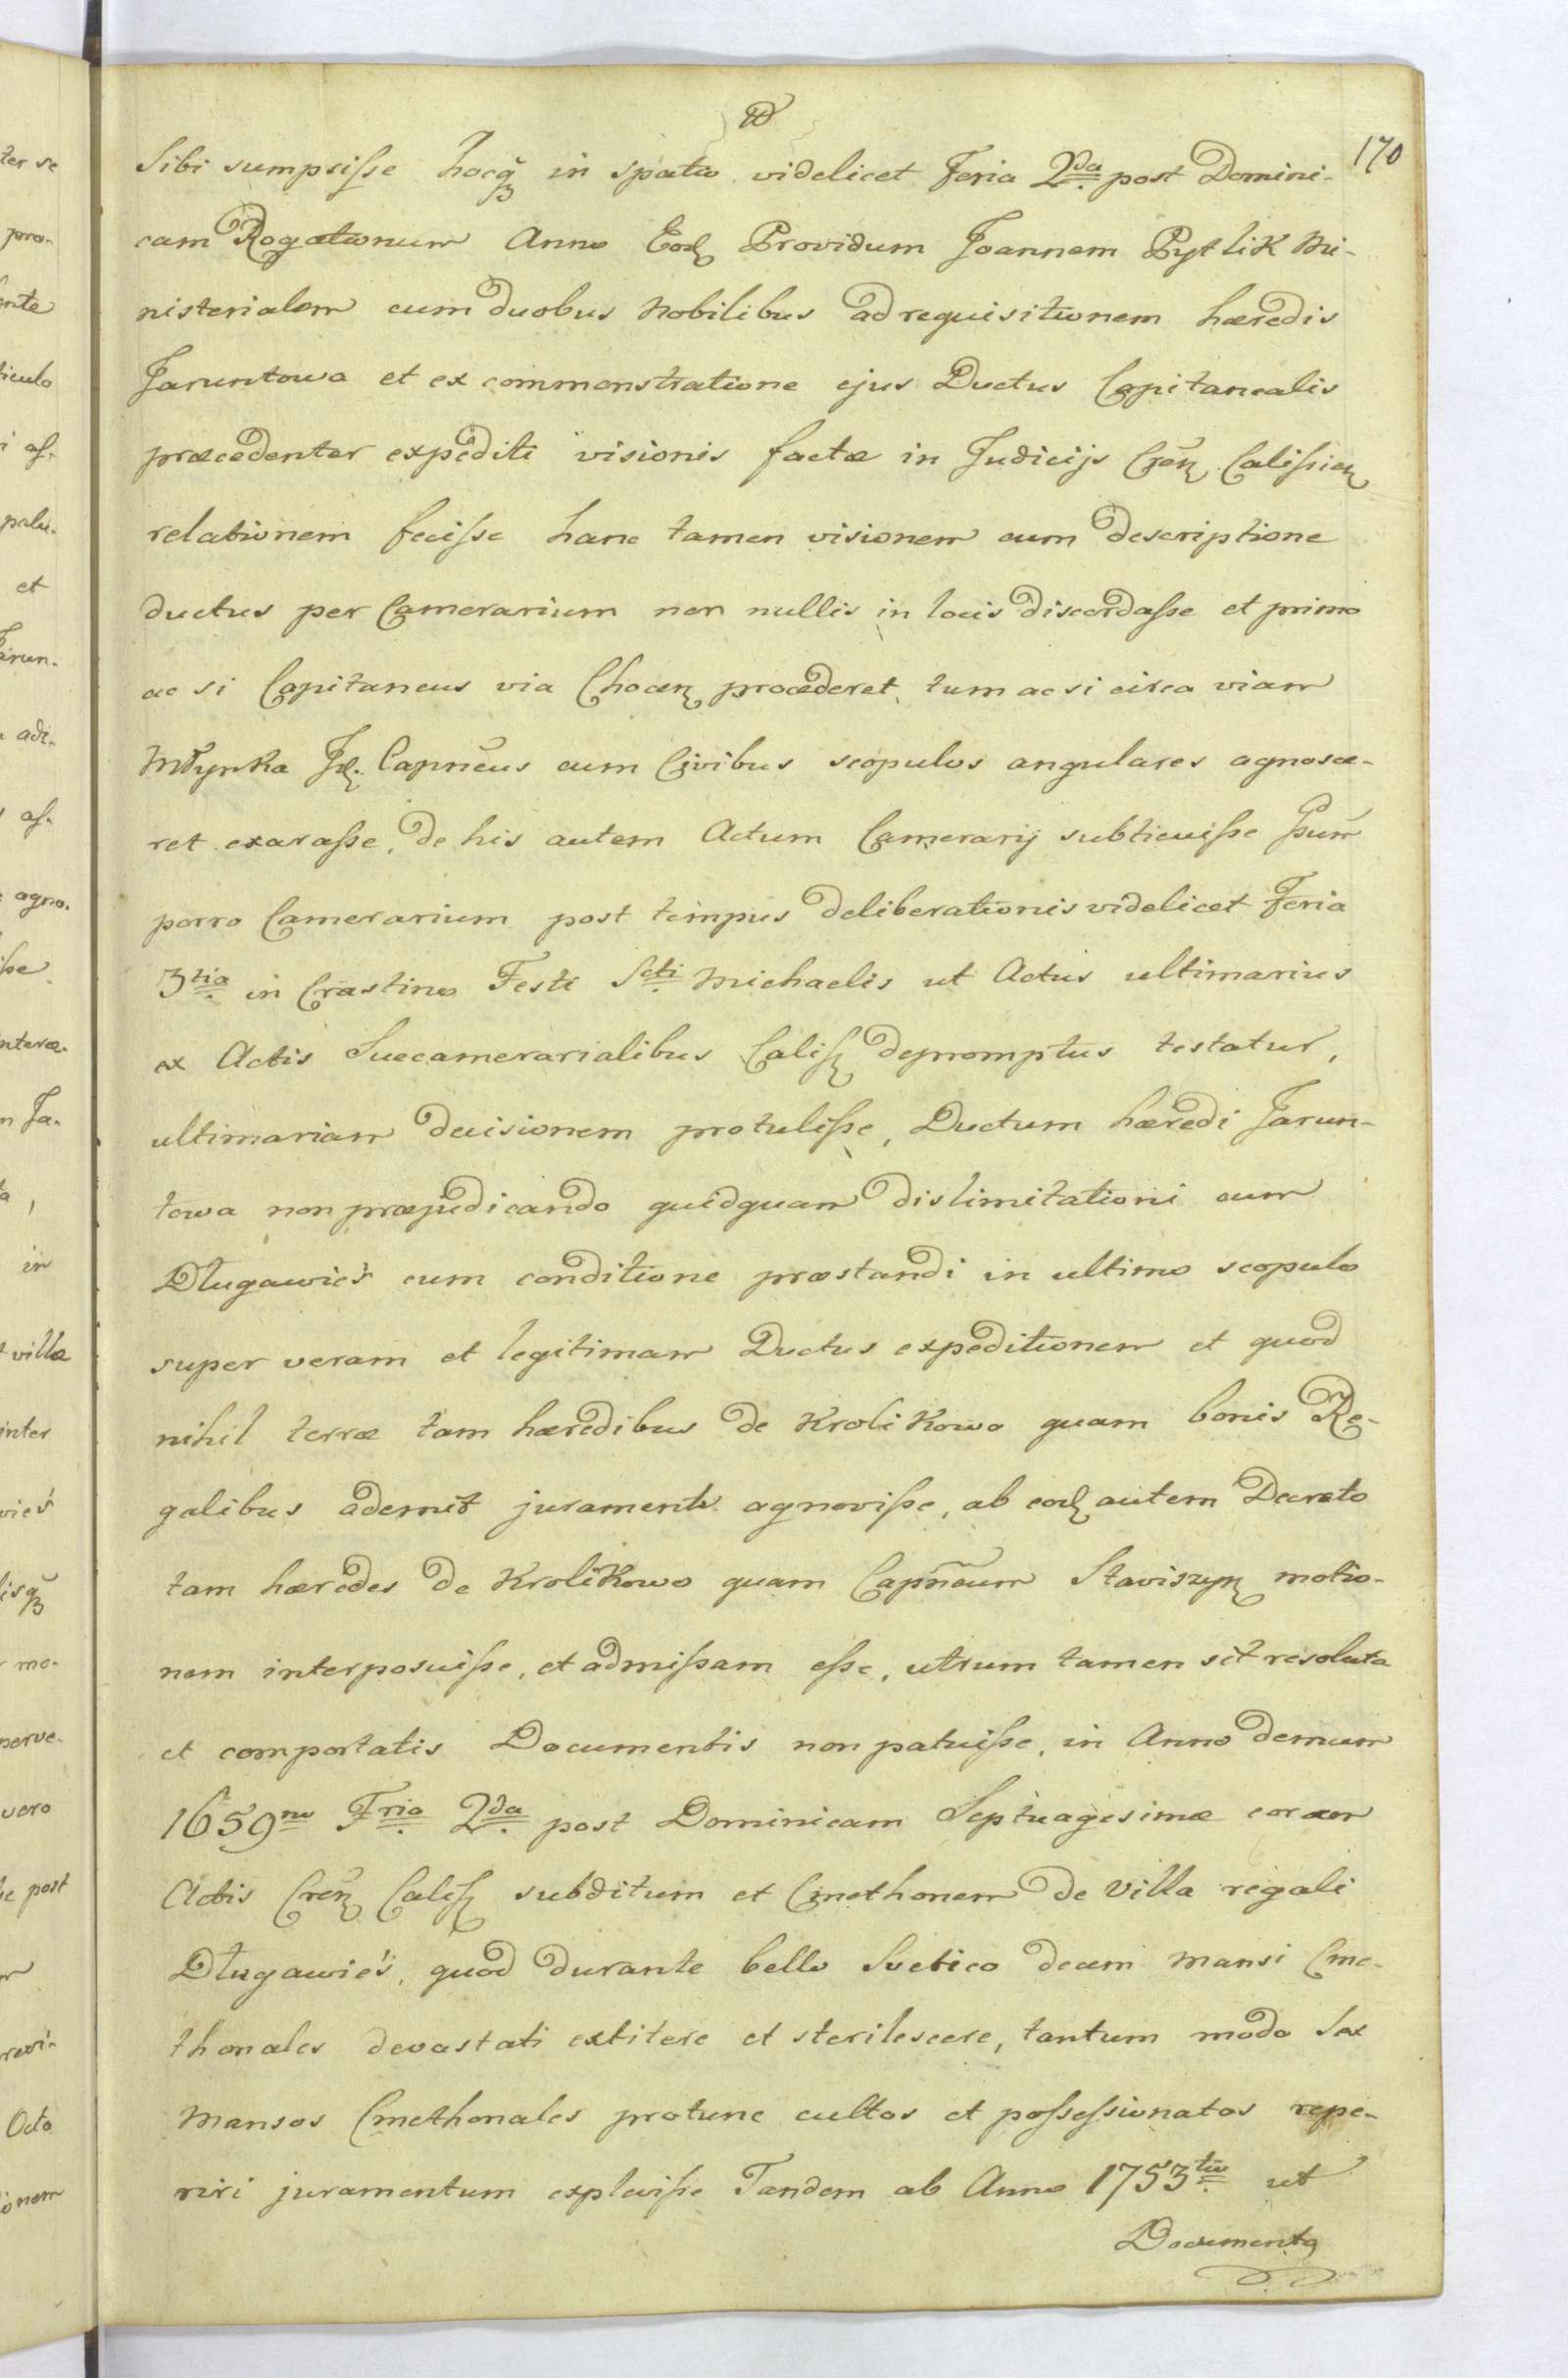 170
Sibi sumpsisse hocq́ꝫ in spatio videlicet Feria 2da post Domini-
cam Rogationum Anno Eod Providum Joannem Pytlik Mi-
nisterialem cum duobus Nobilibus ad requisitionem hæredis
Jaruntowa et ex commonstratione ejus Ductus Capitanealis
præcedenter expediti visionis factæ in Judicijs Cren Calissien
relationem fecisse hanc tamen visionem cum descriptione
ductus per Camerarium non nullis in locis discordasse et primo
ac si Capitaneus via Chocen procederet, tum ac si circa viam
Młynka Id. Capneus cum Civibus scopulos angulares agnosce-
ret exarasse, de his autem Actum Camerarij subticuisse Ipsum
porro Camerarium post tempus deliberationis videlicet Feria
3tia in Crastino Festi Scti Michaelis ut Actus ultimarius
ex Actis Succamerarialibus Caliss depromptus testatur,
ultimariam decisionem protulisse, Ductum hæredi Jarun-
towa non præjudicando quidquam dislimitationi cum
Długawieś cum conditione præstandi in ultimo scopulo
super veram et legitimam Ductus expeditionem et quod
nihil terræ tam hæredibus de Krolikowo quam bonis Re-
galibus ademit juramenti agnovisse, ab eod autem Decreto
tam hæredes de Krolikowo quam Capneum Staviszyn motio-
nem interposuisse, et admissam esse, utrum tamen sit resoluta
et comportatis Documentis non patuisse, in Anno demum
1659no Fria 2da post Dominicam Septuagesimæ coram
Actis Cren Caliss subditum et Cmethonem de Villa regali
Długawieś, quod durante bello Suetico decem Mansi Cme-
thonales devastati extitere et sterilescere, tantum modo Sex
Mansos Cmethonales protunc cultos et possessionatos repe-
riri juramentum explevisse Tandem ab Anno 1753tio ut
Documenta